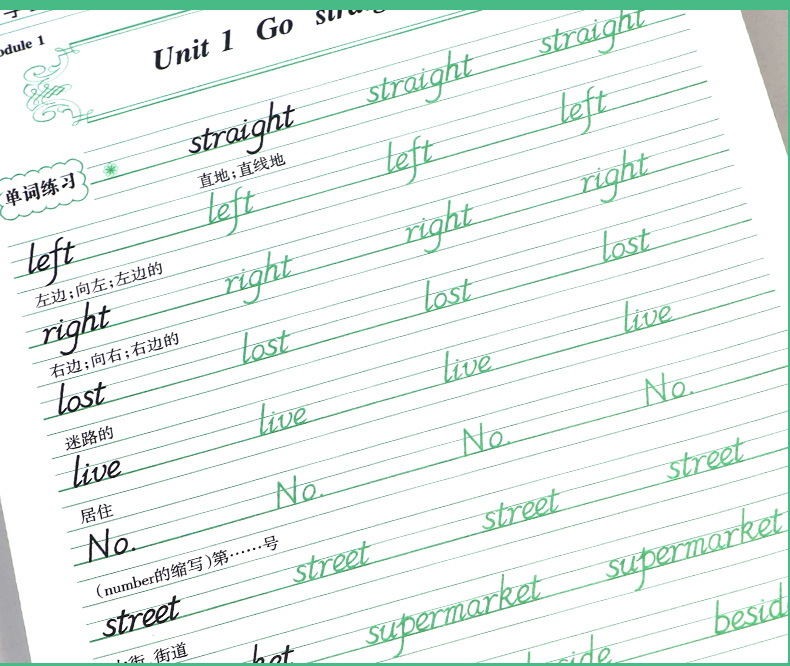 Module 1
Unit 1 Go straigh
单词练习
straight straight straight
直地;直线地
left left left left
左边;向左;左边的
right right right right
右边;向右;右边的
lost lost lost lost
迷路的
live live live live
居住
No. No. No. No.
(number的缩写)第……号
street street street street
街道
supermarket supermarket